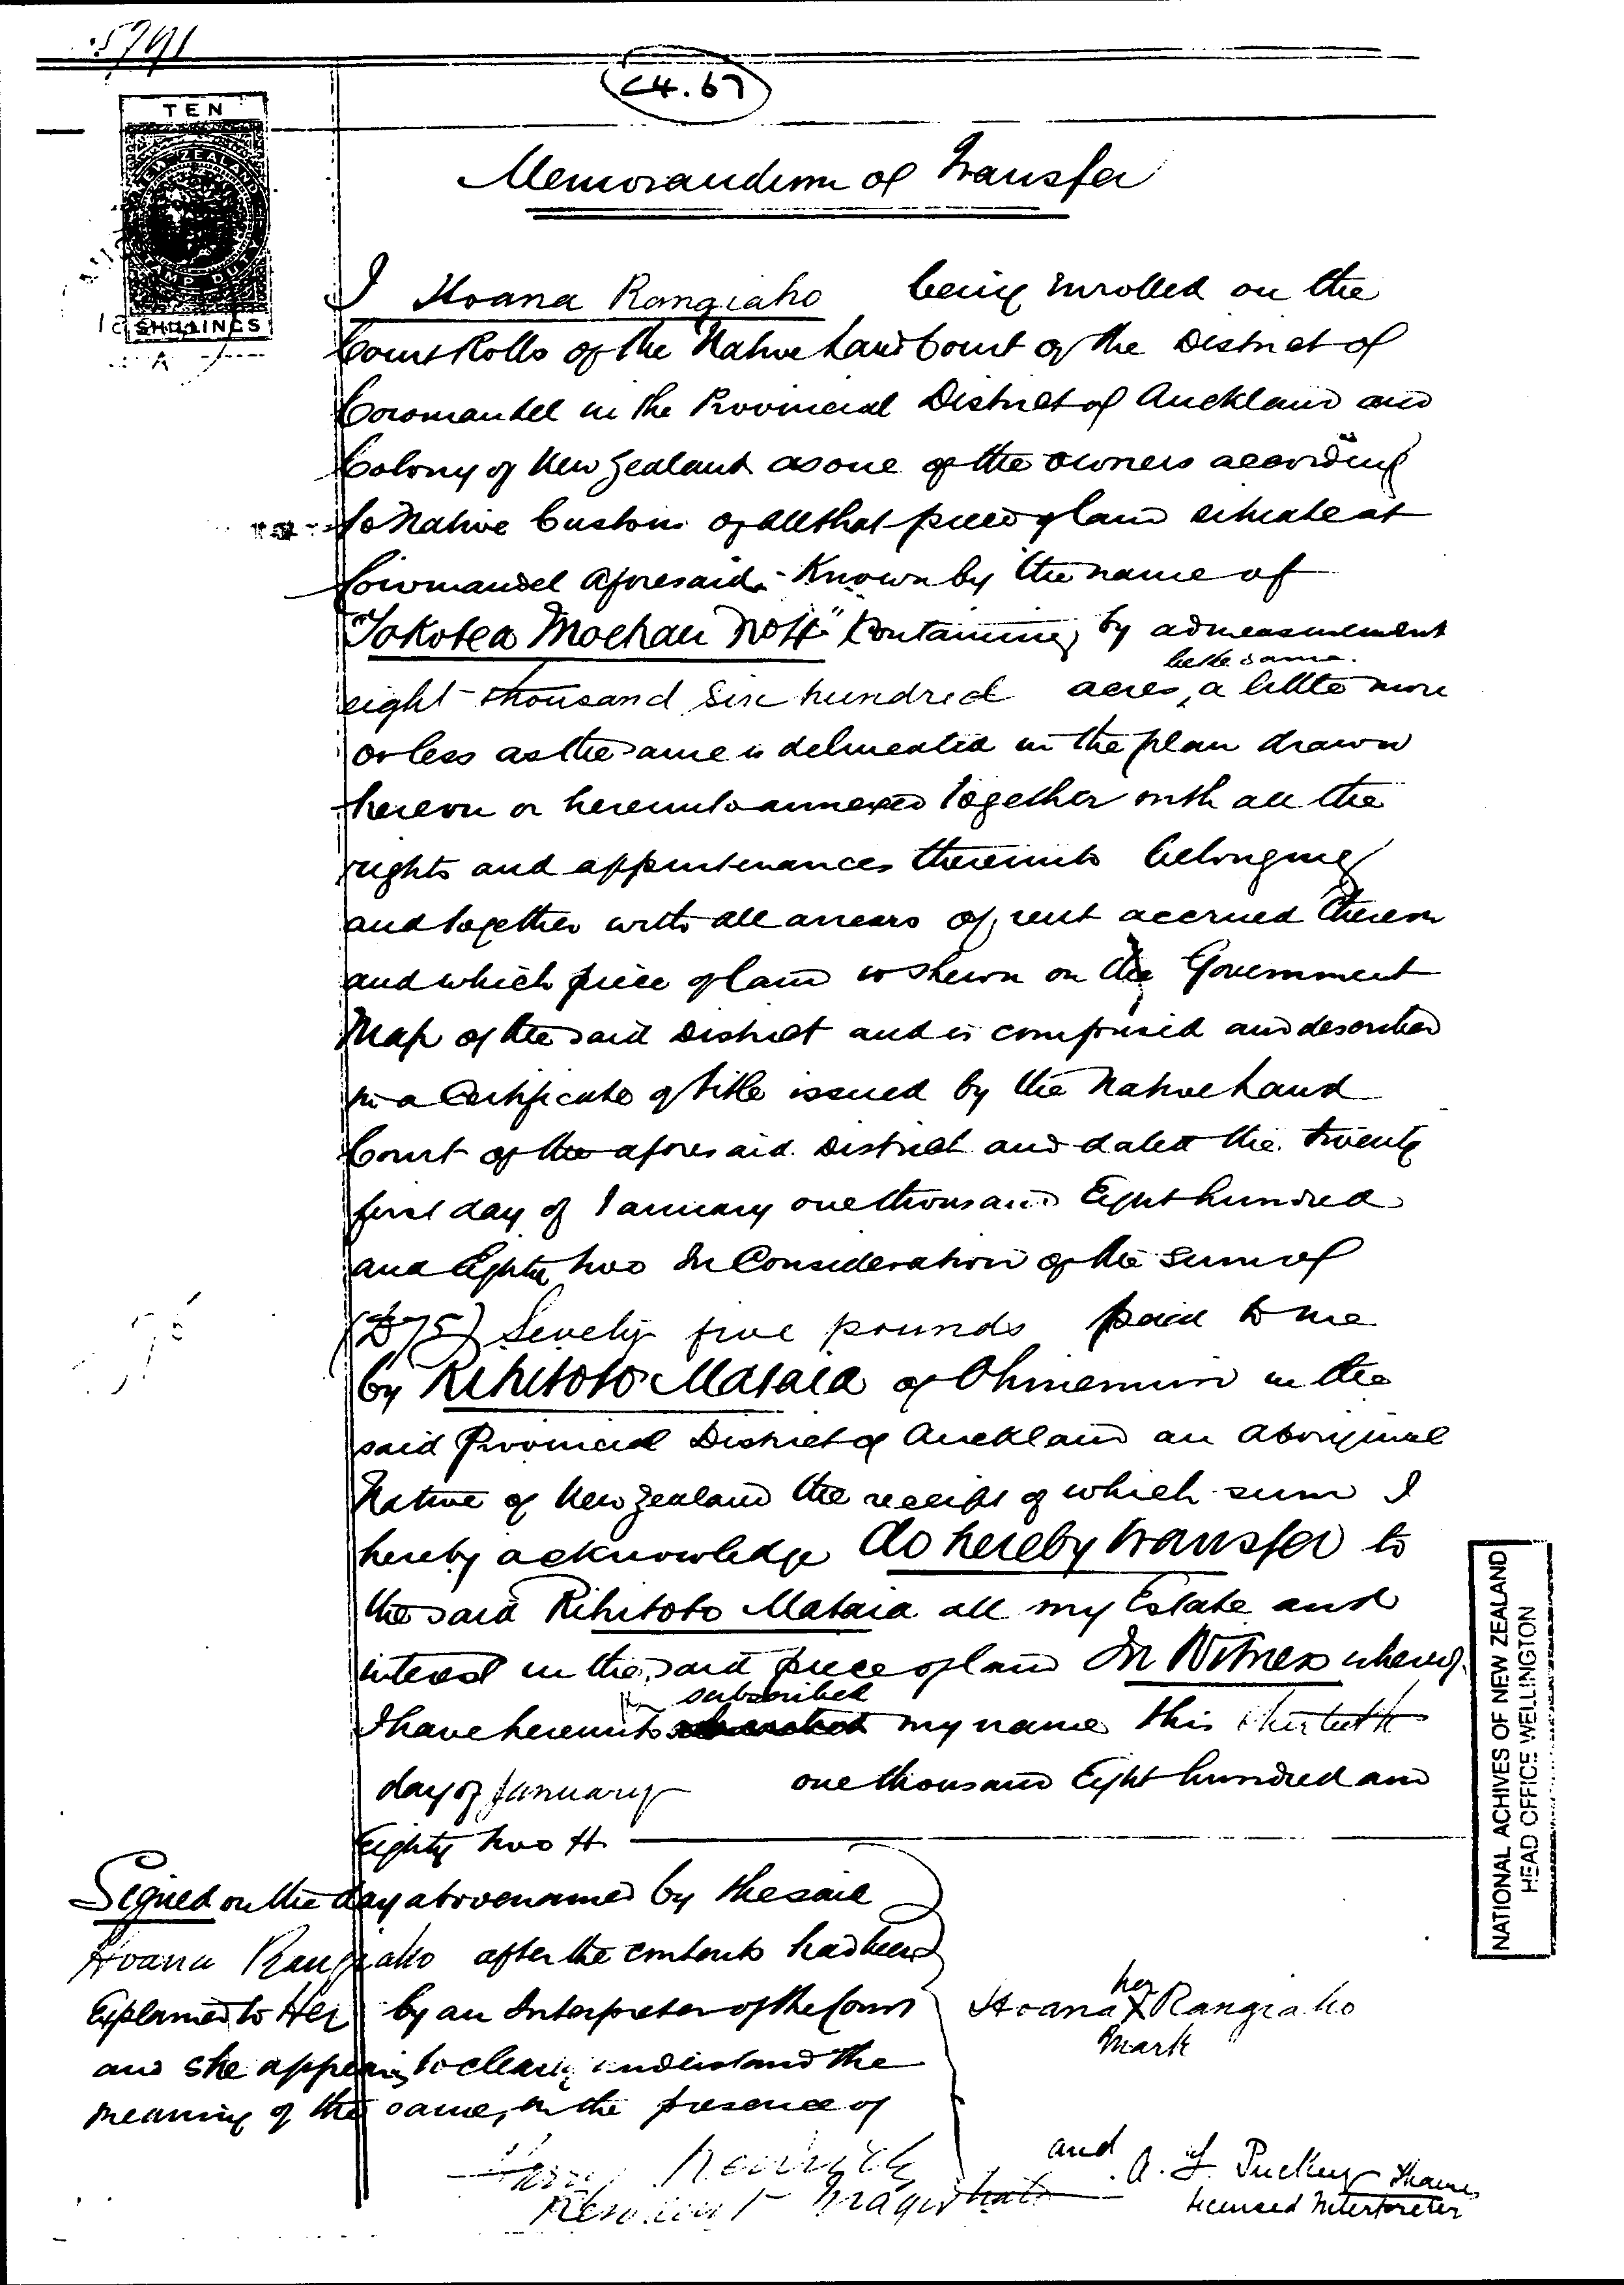 5791
C4.67
TEN
NEW ZEALAND
STAMP DUTY
SHILLINGS
Memorandum of Transfer
I Hoana Rangiaho being enrolled on the
Court Rolls of the Native Land Court of the District of
Coromandel in the Provincial District of Auckland and
Colony of New Zealand as one of the owners according
to Native Custom of all that piece of land situate at
Coromandel aforesaid Known by the name of
"Tokotea Moehau No 4" Containing by admeasurement
be the same
eight thousand six hundred acres, a little more
or less as the same is delineated in the plan drawn
hereon or hereunto annexed together with all the
rights and appurtenances thereunto belonging
and together with all arrears of rent accrued thereon
and which piece of land is shewn on the Government
Map of the said District and is comprised and described
in a Certificate of title issued by the Native Land
Court of the aforesaid District and dated the twenty
first day of January one thousand Eight hundred
and Eighty two In Consideration of the sum of
(£75) Seventy five pounds paid to me
by Rihitoto Mataia of Ohinemuri in the
said Provincial District of Auckland an aboriginal
Native of New Zealand the receipt of which sum I
hereby acknowledge do hereby transfer to
the said Rihitoto Mataia all my Estate and
interest in the said piece of land In Witness whereof
subscribed
I have hereunto my name this thirtieth
day of January one thousand Eight hundred and
Eighty two
Signed on the day abovenamed by the said
Hoana Rangiaho after the contents had been
Explained to Her by an Interpreter of the Court
and she appearing to clearly understand the
meaning of the same, in the presence of
Hoana her X mark Rangiaho
Harry Kenrick
Resident Magistrate
and
A. J. Puckey Thames
Licensed Interpreter
NATIONAL ACHIVES OF NEW ZEALAND
HEAD OFFICE WELLINGTON